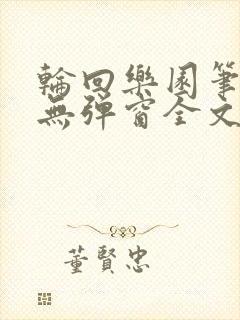 輪回樂園筆
無彈窗全文
董賢忠